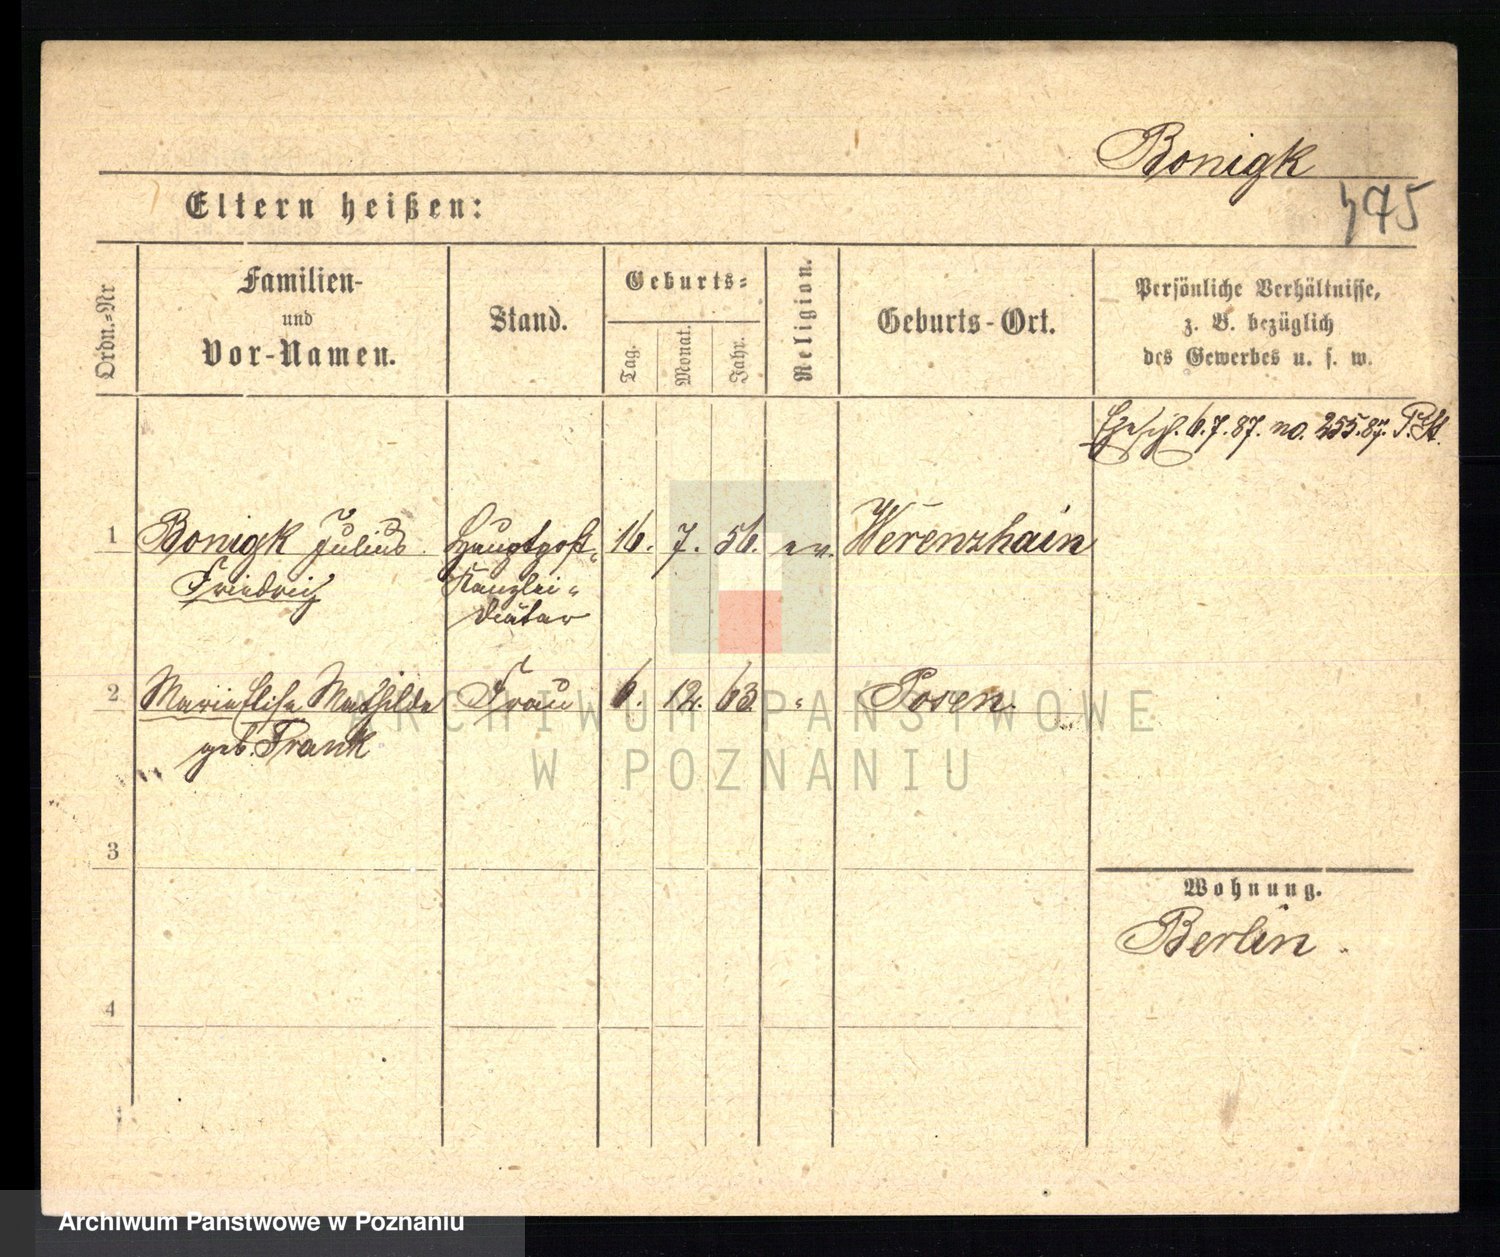 Bonigk
475
Eltern heißen:
Ordn.-Nr
Familien-
und
Vor-Namen.
Stand.
Geburts-
Tag.
Monat.
Jahr.
Religion.
Geburts-Ort.
Persönliche Verhältnisse,
z. B. bezüglich
des Gewerbes u. s. w.
Ehesch. 6.7.87. no. 255.87. P. St.
1 Bonigk Julius Hauptpost- 16. 7. 56. ev. Werenzhain
Friedrich Kanzlei-
Diätar
2 Marie Elise Mathilde Frau 6. 12. 63. " Posen.
geb. Frank
ARCHIWUM PAŃSTWOWE
W POZNANIU
3
Wohnung.
Berlin.
4
Archiwum Państwowe w Poznaniu